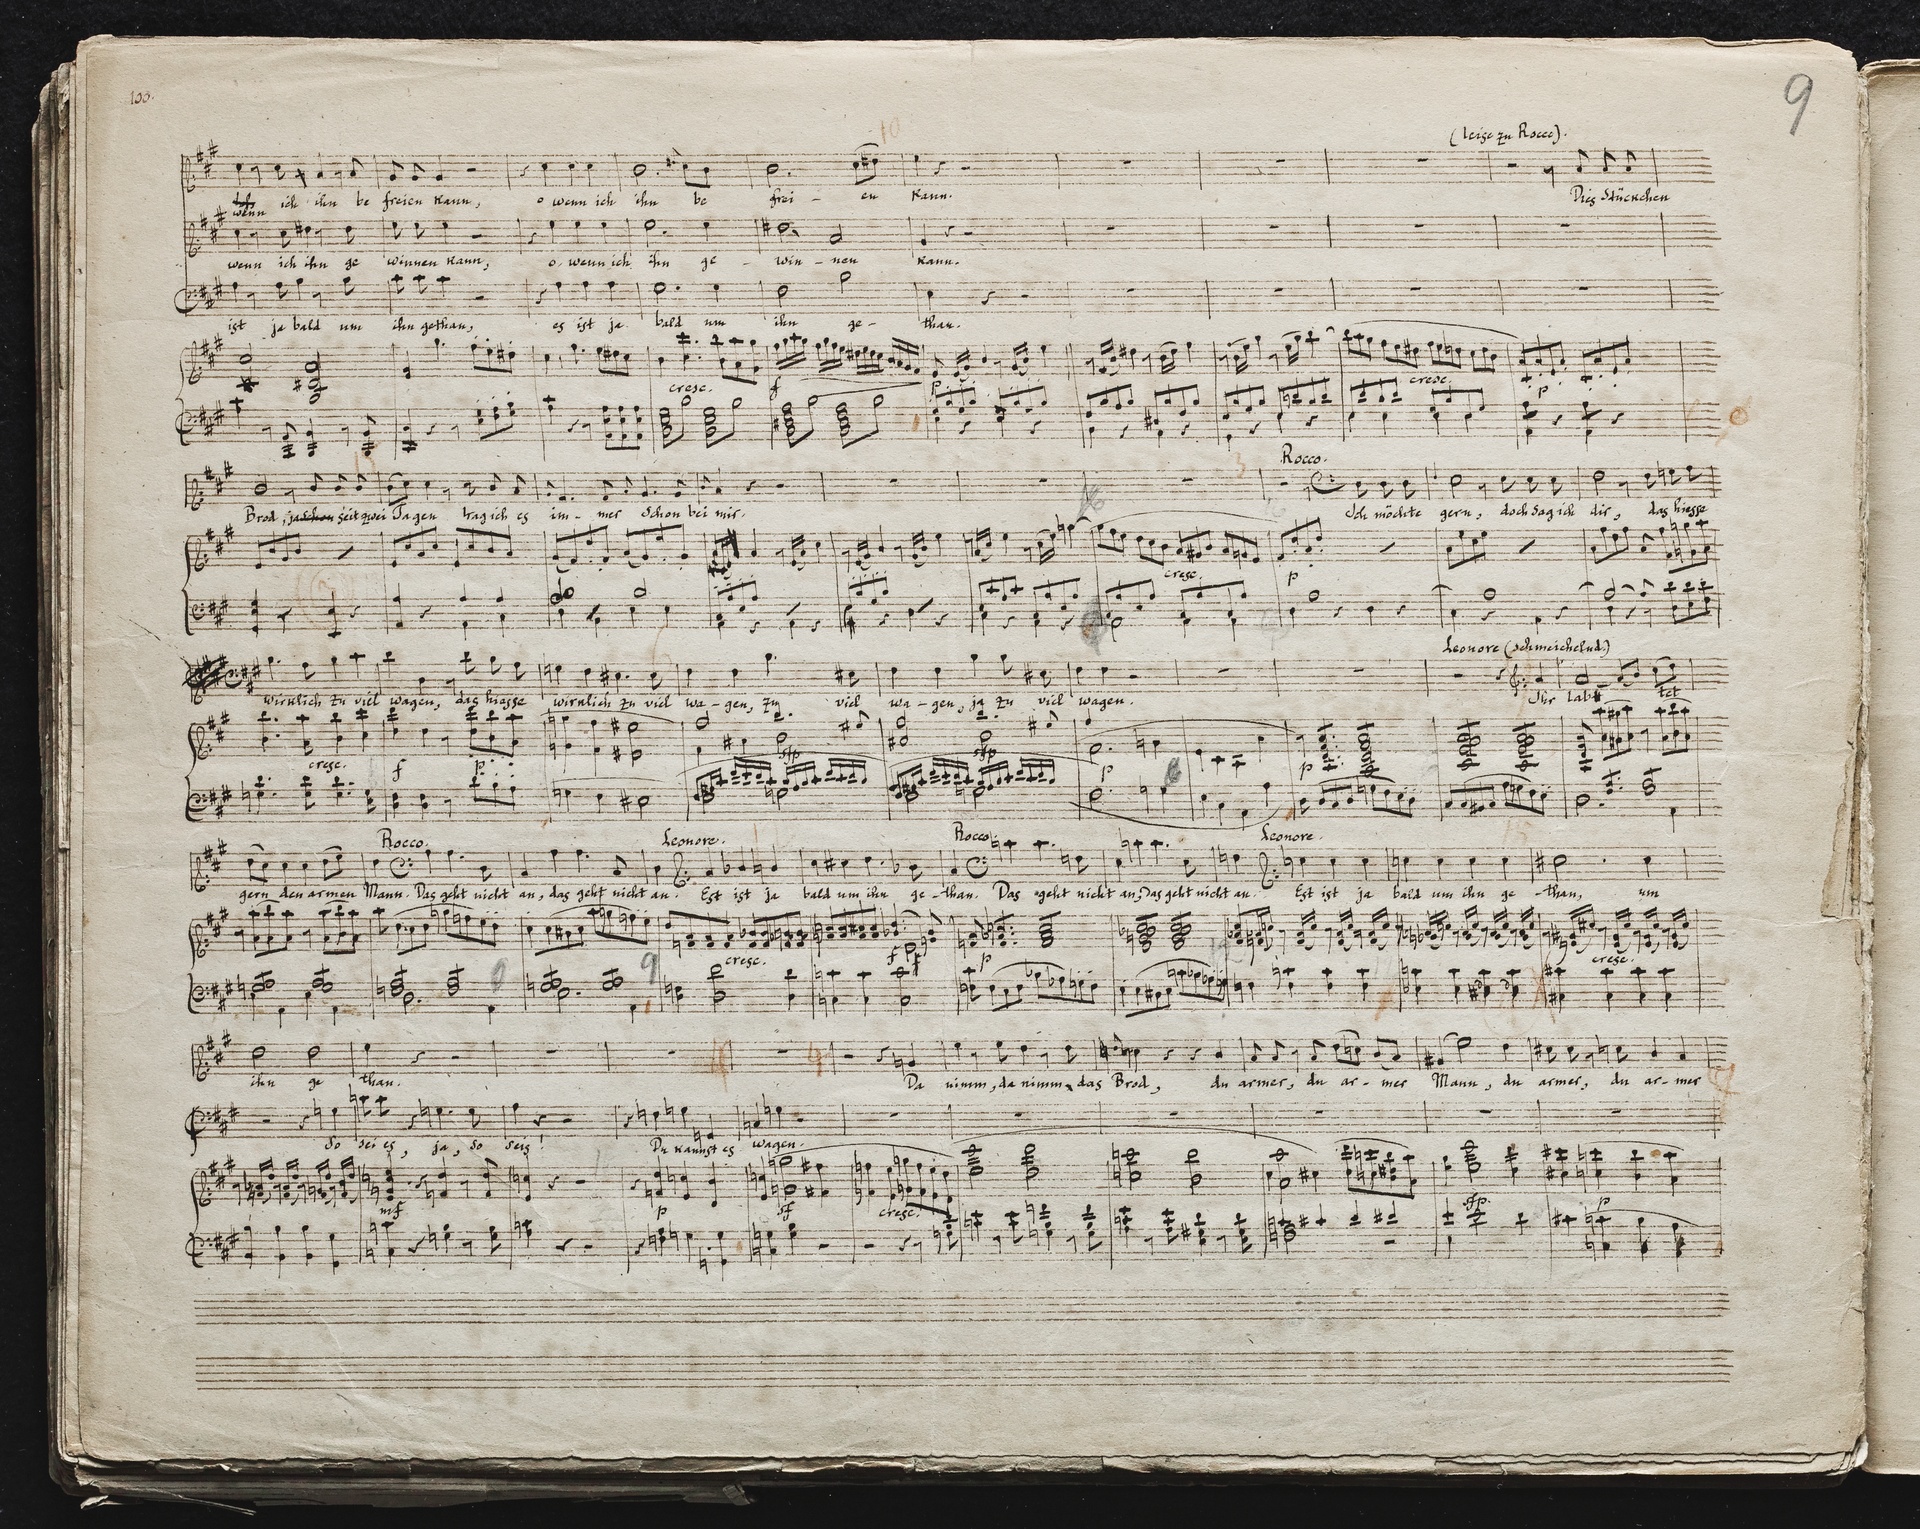 100.
9
10
(leise zu Rocco).
wenn ich ihn be freien kann, o wenn ich ihn be frei - en kann. Dies Stückchen
wenn ich ihn ge winnen kann, o wenn ich ihn ge - win - nen kann.
ist ja bald um ihn gethan, es ist ja bald um ihn ge - than.
cresc. f p cresc. p
Rocco.
Brod, ja schon seit zwei Tagen trag ich es im - mer schon bei mir. Ich möchte gern, doch sag ich dir, das hiesse
cresc. p
Leonore (schmeichelnd.)
wirklich zu viel wagen, das hiesse wirklich zu viel wa - gen, zu viel wa - gen, ja zu viel wagen. Ihr labt tet
cresc. f p. sfp sfp p p
Rocco. Leonore. Rocco. Leonore.
gern den armen Mann. Das geht nicht an, das geht nicht an. Est ist ja bald um ihn ge - than. Das geht nicht an, das geht nicht an. Est ist ja bald um ihn ge - than, um
cresc. f f p cresc.
9
ihn ge than. Da nimm, da nimm das Brod, du armer, du ar - mer Mann, du armer, du ar - mer
So sei es, ja, so seis! Du kannst es wagen.
mf p sf cresc. sfp. p